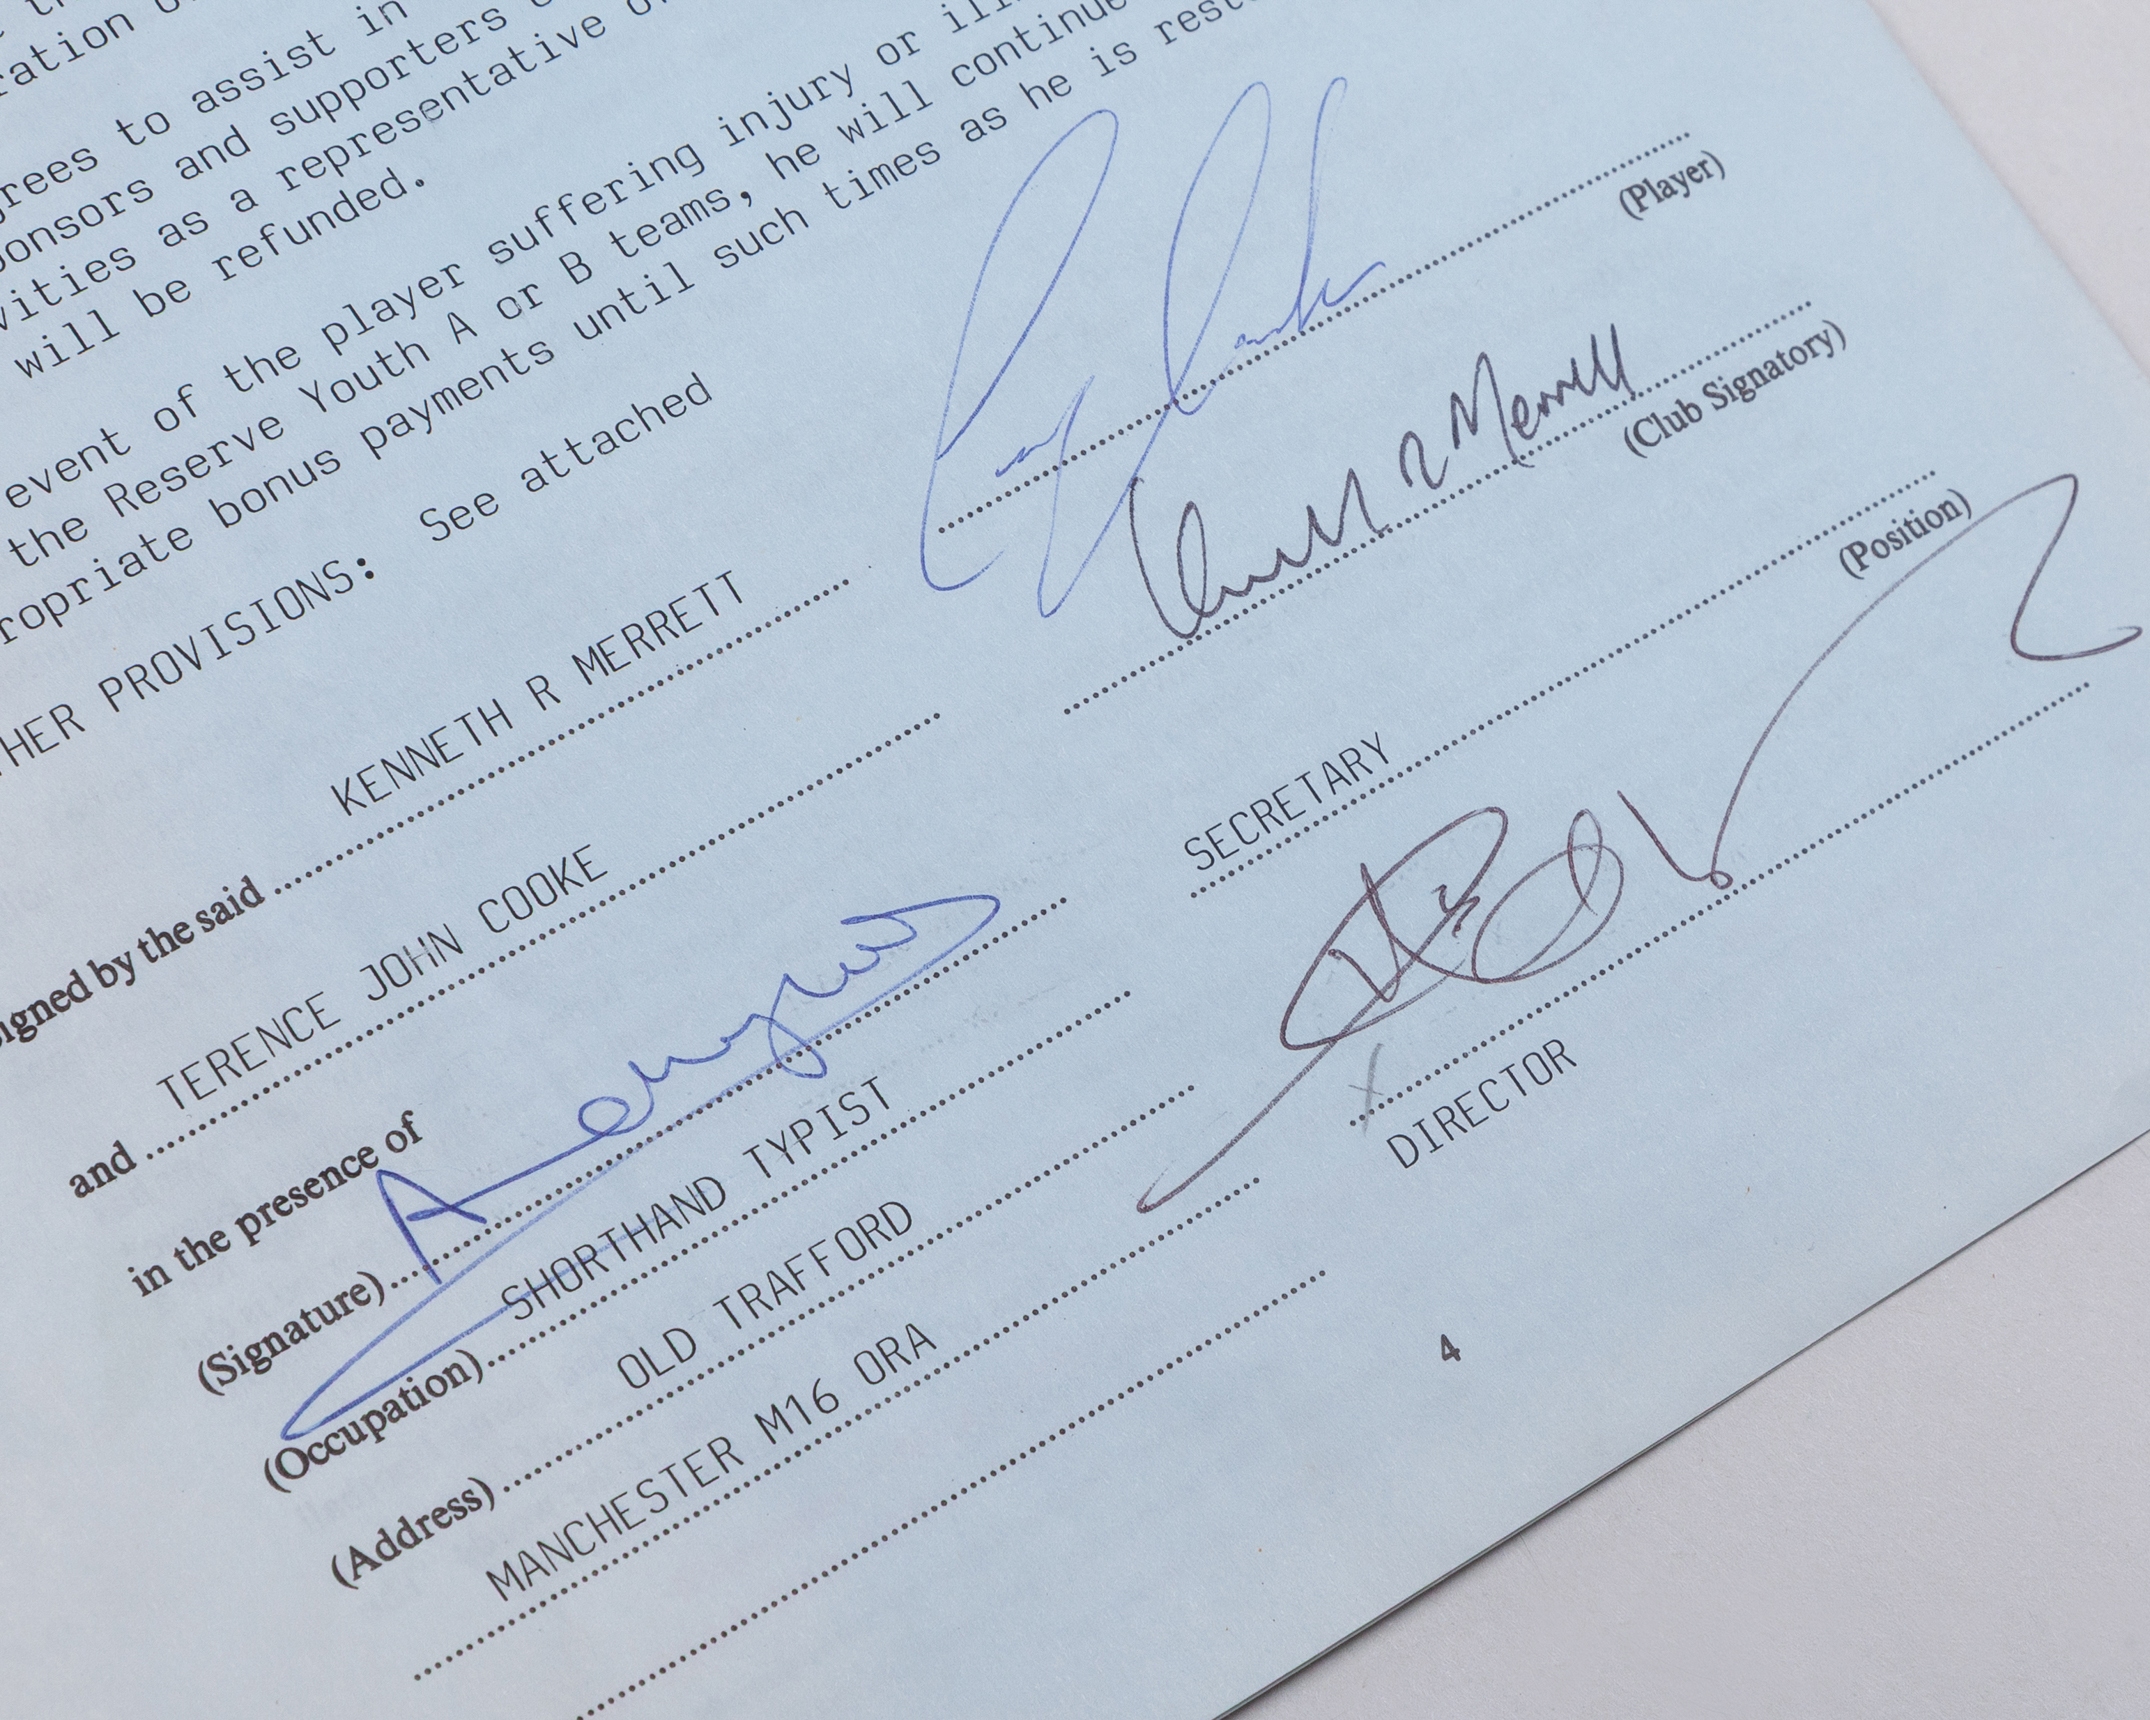 ration
rees to assist in
onsors and supporters
vities as a representative
will be refunded.
event of the player suffering injury or
the Reserve Youth A or B teams, he will continue
ropriate bonus payments until such times as he is rest
HER PROVISIONS: See attached
(Player)
igned by the said KENNETH R MERRETT
Kenneth R Merrett
(Club Signatory)
and TERENCE JOHN COOKE
SECRETARY
(Position)
in the presence of
(Signature)
(Occupation) SHORTHAND TYPIST
DIRECTOR
(Address) OLD TRAFFORD
MANCHESTER M16 ORA
4